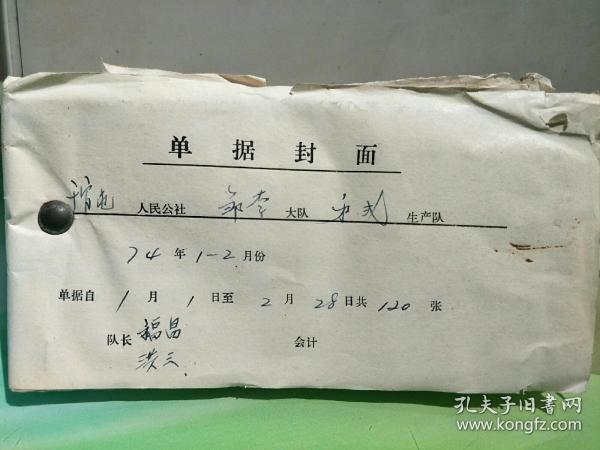 单据封面
人民公社 邹李 大队 第 弍 生产队
74年1-2月份
单据自1月1日至2月28日共120张
队长 福昌 会计
洪三
孔夫子旧书网
www.kongfz.com